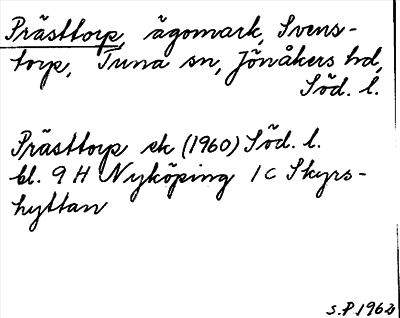 Prästtorp, ägomark, Svens-
torp, Tuna sn, Jönåkers hd,
Söd. l.
Prästtorp ek (1960) Söd. l.
bl. 9 H Nyköping 1 C Skyrs-
hyttan
S.P. 1962